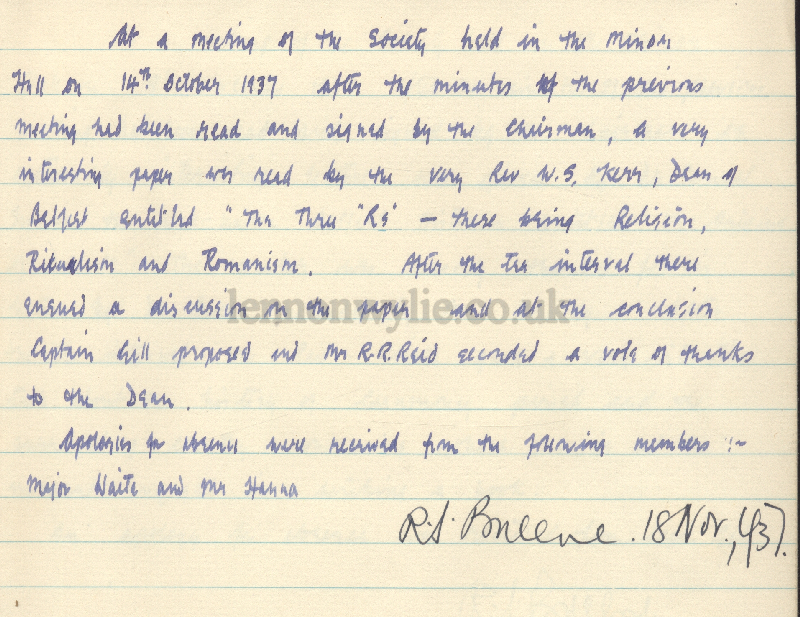 At a meeting of the Society held in the Minor
Hall on 14th October 1937 after the minutes of the previous
meeting had been read and signed by the Chairman, a very
interesting paper was read by the Very Rev W.S. Kerr, Dean of
Belfast entitled "The Three "Rs" — these being Religion,
Ritualism and Romanism. After the tea interval there
ensued a discussion on the paper and at the conclusion
lennonwylie.co.uk
Captain Gill proposed and Mr R.R. Reid seconded a vote of thanks
to the Dean.
Apologies for absence were received from the following members :-
Major Waite and Mr Hanna
R.S. Breene. 18 Nov., 1937.